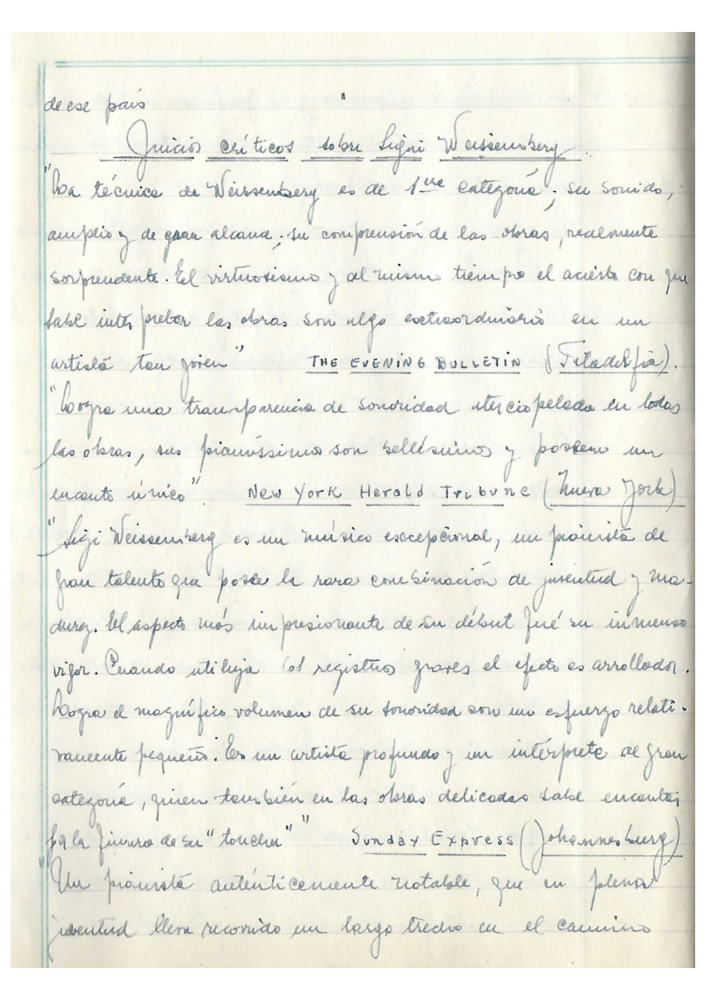 de ese país
Juicios críticos sobre Sigi Weissenberg
"La técnica de Weissenberg es de 1ere categoría; su sonido,
amplio y de gran alcance; su comprensión de las obras, realmente
sorprendente. El virtuosismo y al mismo tiempo el acierto con que
sabe interpretar las obras son algo extraordinario en un
artista tan joven" THE EVENING BULLETIN (Filadelfia).
"Logra una transparencia de sonoridad aterciopelada en todas
las obras, sus pianíssimos son bellísimos y poseen un
encanto único". New York Herald Tribune (Nueva York)
"Sigi Weissemberg es un músico excepcional, un pianista de
gran talento que posee la rara combinación de juventud y ma-
durez. El aspecto más impresionante de su début fué su inmenso
vigor. Cuando utiliza los registros graves el efecto es arrollador.
Logra el magnífico volumen de su sonoridad con un esfuerzo relati-
vamente pequeño. Es un artista profundo y un intérprete de gran
categoría, quien también en las obras delicadas sabe encantar
por la finura de su "toucher"" Sunday Express (Johannesburg)
"Un pianista auténticamente notable, que en plena
juventud lleva recorrido un largo trecho en el camino